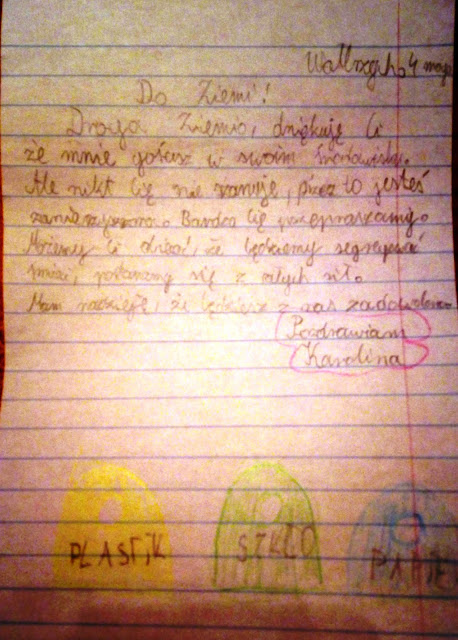 Wałbrzych, 4 maja
Do Ziemi!
Droga Ziemio, dziękuję Ci
że mnie gościsz w swoim środowisku.
Ale nikt Cię nie szanuje, przez to jesteś
zanieczyszczona. Bardzo Cię przepraszamy.
Możemy Ci obiecać, że będziemy segregować
śmieci, postaramy się z całych sił.
Mam nadzieję, że będziesz z nas zadowolona.
Pozdrawiam
Karolina
PLASTIK SZKŁO PAPIE